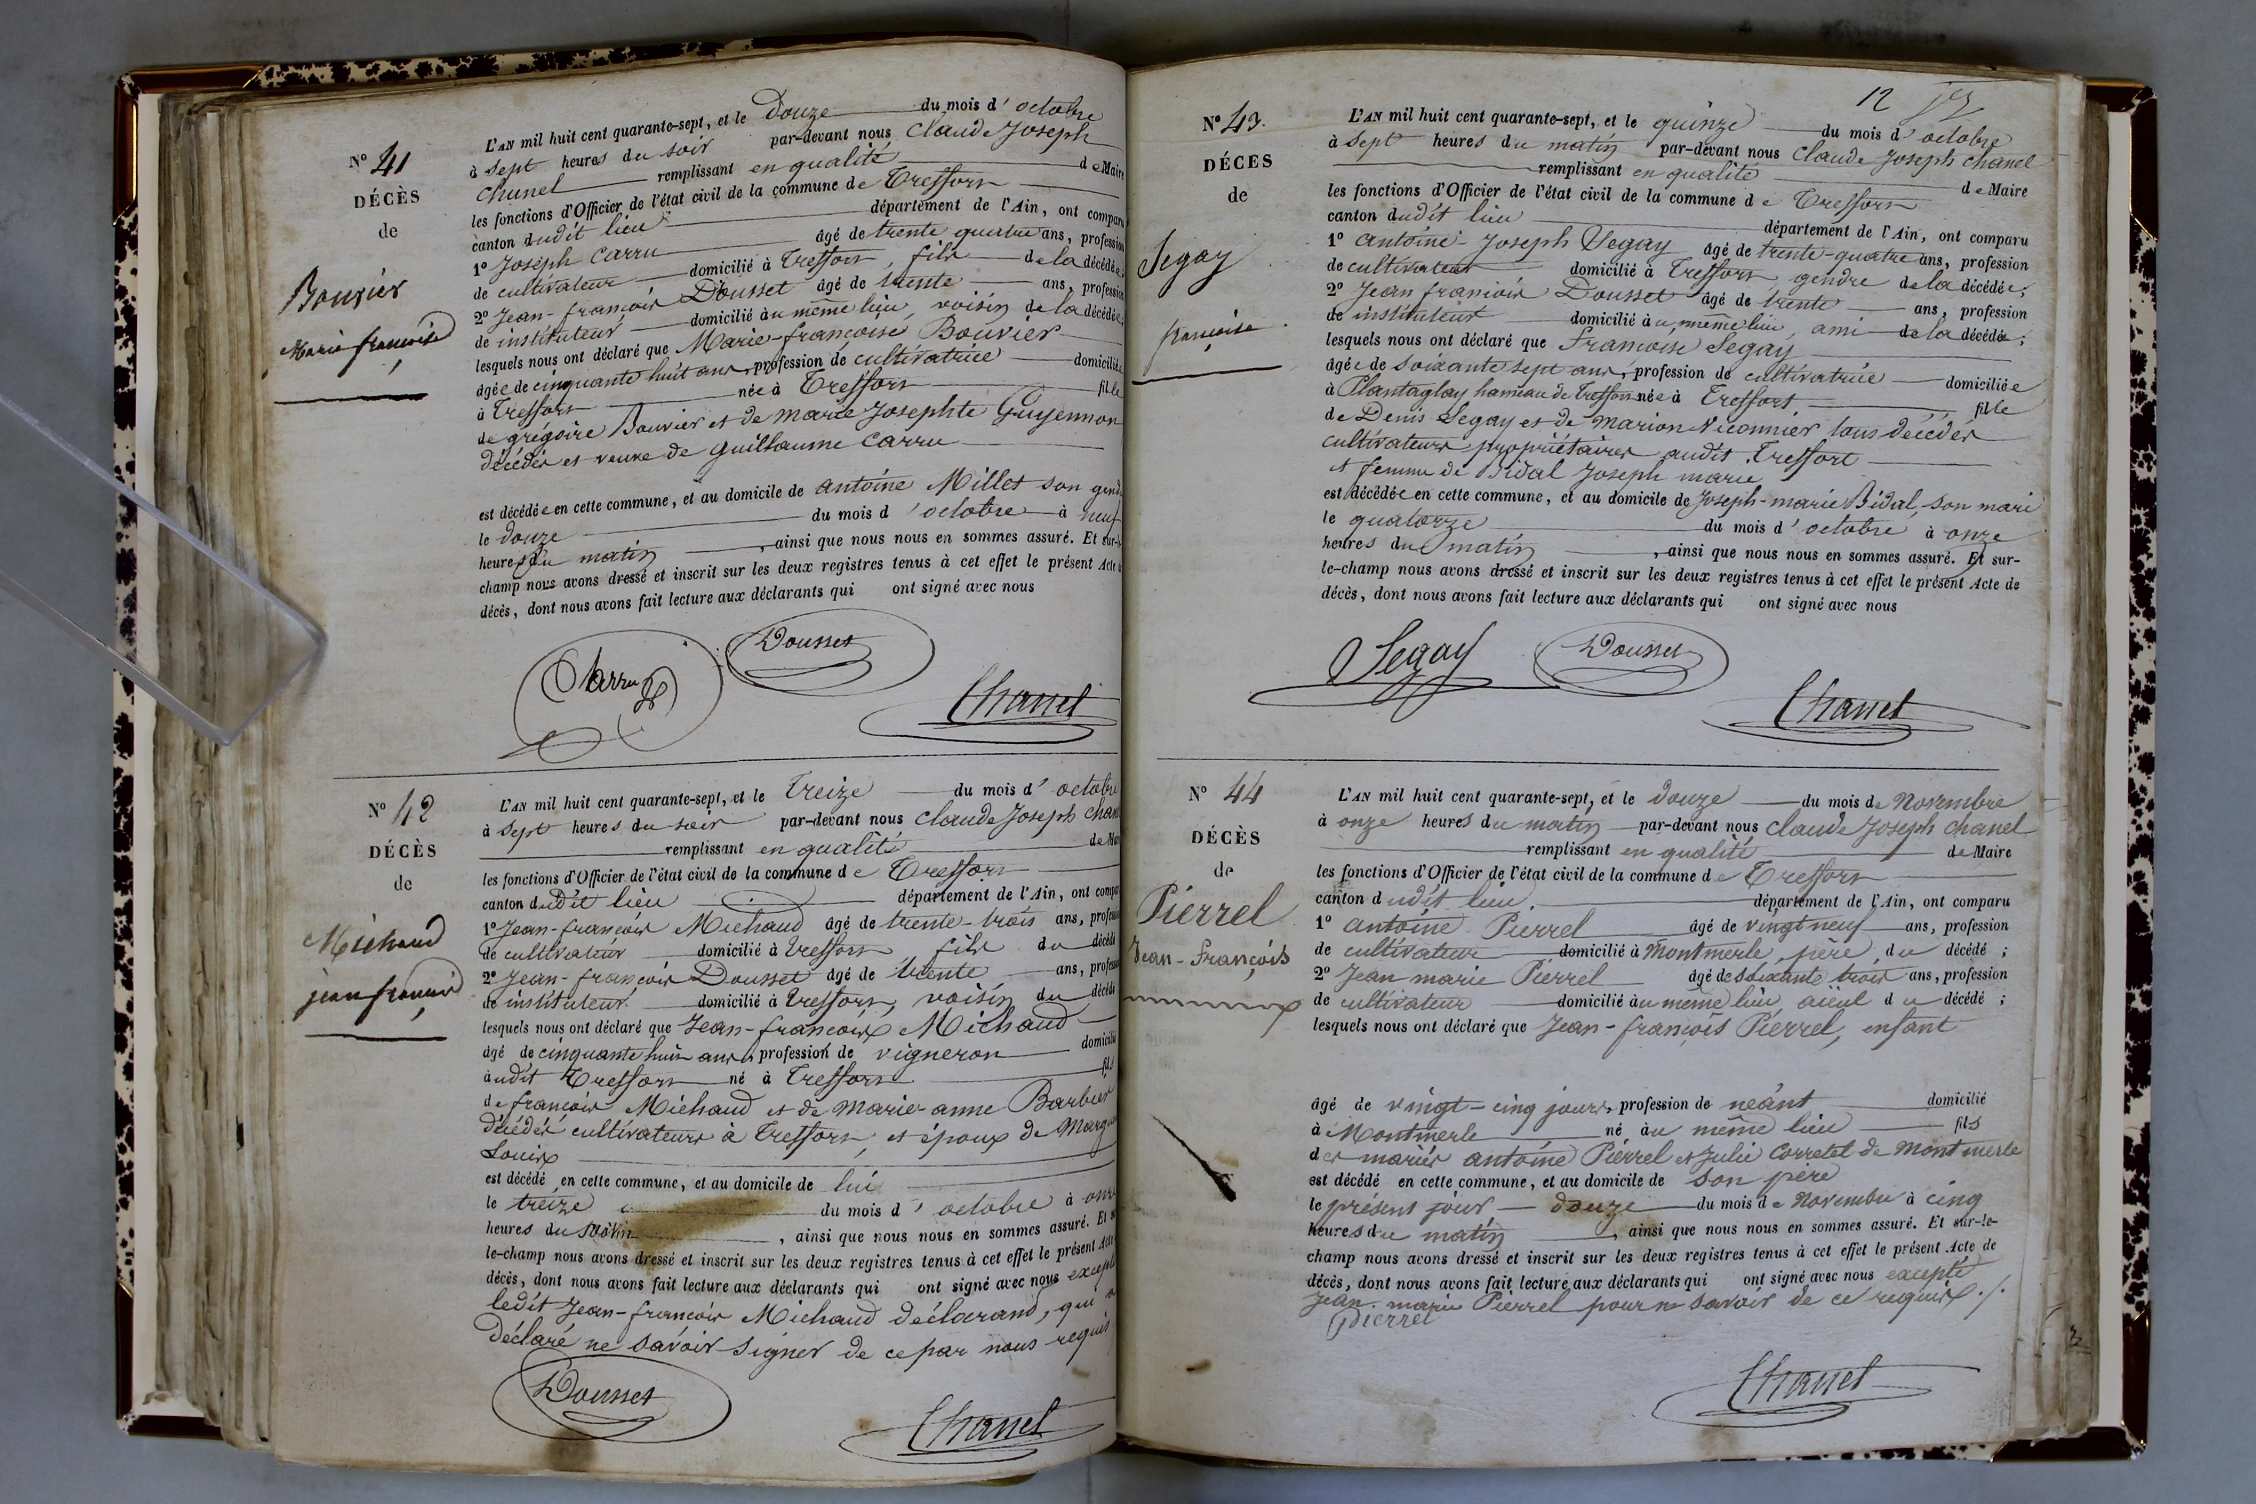 N° 41
DÉCÈS
de
Bouvier
Marie françoise
L'AN mil huit cent quarante-sept, et le Douze du mois d'octobre
à sept heures du soir par-devant nous Claude Joseph
Chanel remplissant en qualité de Maire
les fonctions d'Officier de l'état civil de la commune de Treffort
canton dudit lieu département de l'Ain, ont comparu
1° Joseph Carru âgé de trente quatre ans, profession
de cultivateur domicilié à Treffort, fils de la décédée;
2° Jean-françois Dousset âgé de trente ans, profession
de instituteur domicilié au même lieu, voisin de la décédée;
lesquels nous ont déclaré que Marie-françoise Bouvier
âgée de cinquante huit ans, profession de cultivatrice domiciliée
à Treffort née à Treffort fille
de grégoire Bouvier et de marie Josephte Guyennon
décédés et veuve de guillaume Carru
est décédée en cette commune, et au domicile de antoine Millet son gendre
le douze du mois d'octobre à neuf
heures du matin, ainsi que nous nous en sommes assuré. Et sur-le-
champ nous avons dressé et inscrit sur les deux registres tenus à cet effet le présent Acte de
décès, dont nous avons fait lecture aux déclarants qui ont signé avec nous
Carru
Dousset
Chanel
N° 42
DÉCÈS
de
Michaud
jean françois
L'AN mil huit cent quarante-sept, et le Treize du mois d'octobre
à sept heures du soir par-devant nous Claude Joseph Chanel
remplissant en qualité de Maire
les fonctions d'Officier de l'état civil de la commune de Treffort
canton dudit lieu département de l'Ain, ont comparu
1° Jean-françois Michaud âgé de trente-trois ans, profession
de cultivateur domicilié à Treffort fils du décédé
2° Jean-françois Dousset âgé de trente ans, profession
de instituteur domicilié à Treffort, voisin du décédé
lesquels nous ont déclaré que Jean-françois Michaud
âgé de cinquante huit ans, profession de vigneron domicilié
audit Treffort né à Treffort fils
de françois Michaud et de marie-anne Barbier
décédés cultivateurs à Treffort, et époux de
Louise
est décédé en cette commune, et au domicile de lui
le treize du mois d'octobre à onze
heures du matin, ainsi que nous nous en sommes assuré. Et sur-
le-champ nous avons dressé et inscrit sur les deux registres tenus à cet effet le présent Acte
décès, dont nous avons fait lecture aux déclarants qui ont signé avec nous excepté
ledit Jean-françois Michaud déclarant, qui a
déclaré ne savoir signer de ce par nous requis
Dousset
Chanel
12
N° 43.
DÉCÈS
de
Segay
françoise
L'AN mil huit cent quarante-sept, et le quinze du mois d'octobre
à sept heures du matin par-devant nous Claude Joseph Chanel
remplissant en qualité de Maire
les fonctions d'Officier de l'état civil de la commune de Treffort
canton dudit lieu département de l'Ain, ont comparu
1° antoine-Joseph Segay âgé de trente-quatre ans, profession
de cultivateur domicilié à Treffort, gendre de la décédée;
2° Jean françois Dousset âgé de trente ans, profession
de instituteur domicilié au même lieu, ami de la décédée;
lesquels nous ont déclaré que françoise Segay
âgée de soixante sept ans, profession de cultivatrice domiciliée
à Plantaglay hameau de Treffort née à Treffort fille
de Denis Segay et de marion Niconnier tous décédés
cultivateurs propriétaires audit Treffort
et femme de Bidal Joseph marie
est décédée en cette commune, et au domicile de Joseph-marie Bidal, son mari
le quatorze du mois d'octobre à onze
heures du matin, ainsi que nous nous en sommes assuré. Et sur-
le-champ nous avons dressé et inscrit sur les deux registres tenus à cet effet le présent Acte de
décès, dont nous avons fait lecture aux déclarants qui ont signé avec nous
J Segay
Dousset
Chanel
N° 44
DÉCÈS
de
Pierrel
Jean-François
L'AN mil huit cent quarante-sept, et le douze du mois de Novembre
à onze heures du matin par-devant nous Claude Joseph Chanel
remplissant en qualité de Maire
les fonctions d'Officier de l'état civil de la commune de Treffort
canton dudit lieu. département de l'Ain, ont comparu
1° antoine Pierrel âgé de vingt neuf ans, profession
de cultivateur domicilié à Montmerle, père du décédé;
2° Jean marie Pierrel âgé de soixante trois ans, profession
de cultivateur domicilié au même lieu, aïeul du décédé;
lesquels nous ont déclaré que Jean-françois Pierrel, enfant
âgé de vingt-cinq jours, profession de néant domicilié
à Montmerle né au même lieu fils
des mariés antoine Pierrel et Julie Corretel de Montmerle
est décédé en cette commune, et au domicile de son père
le présent jour — douze du mois de Novembre à cinq
heures du matin, ainsi que nous nous en sommes assuré. Et sur-le-
champ nous avons dressé et inscrit sur les deux registres tenus à cet effet le présent Acte de
décès, dont nous avons fait lecture aux déclarants qui ont signé avec nous excepté
Jean marie Pierrel pour ne savoir de ce requis ./.
Pierrel
Chanel